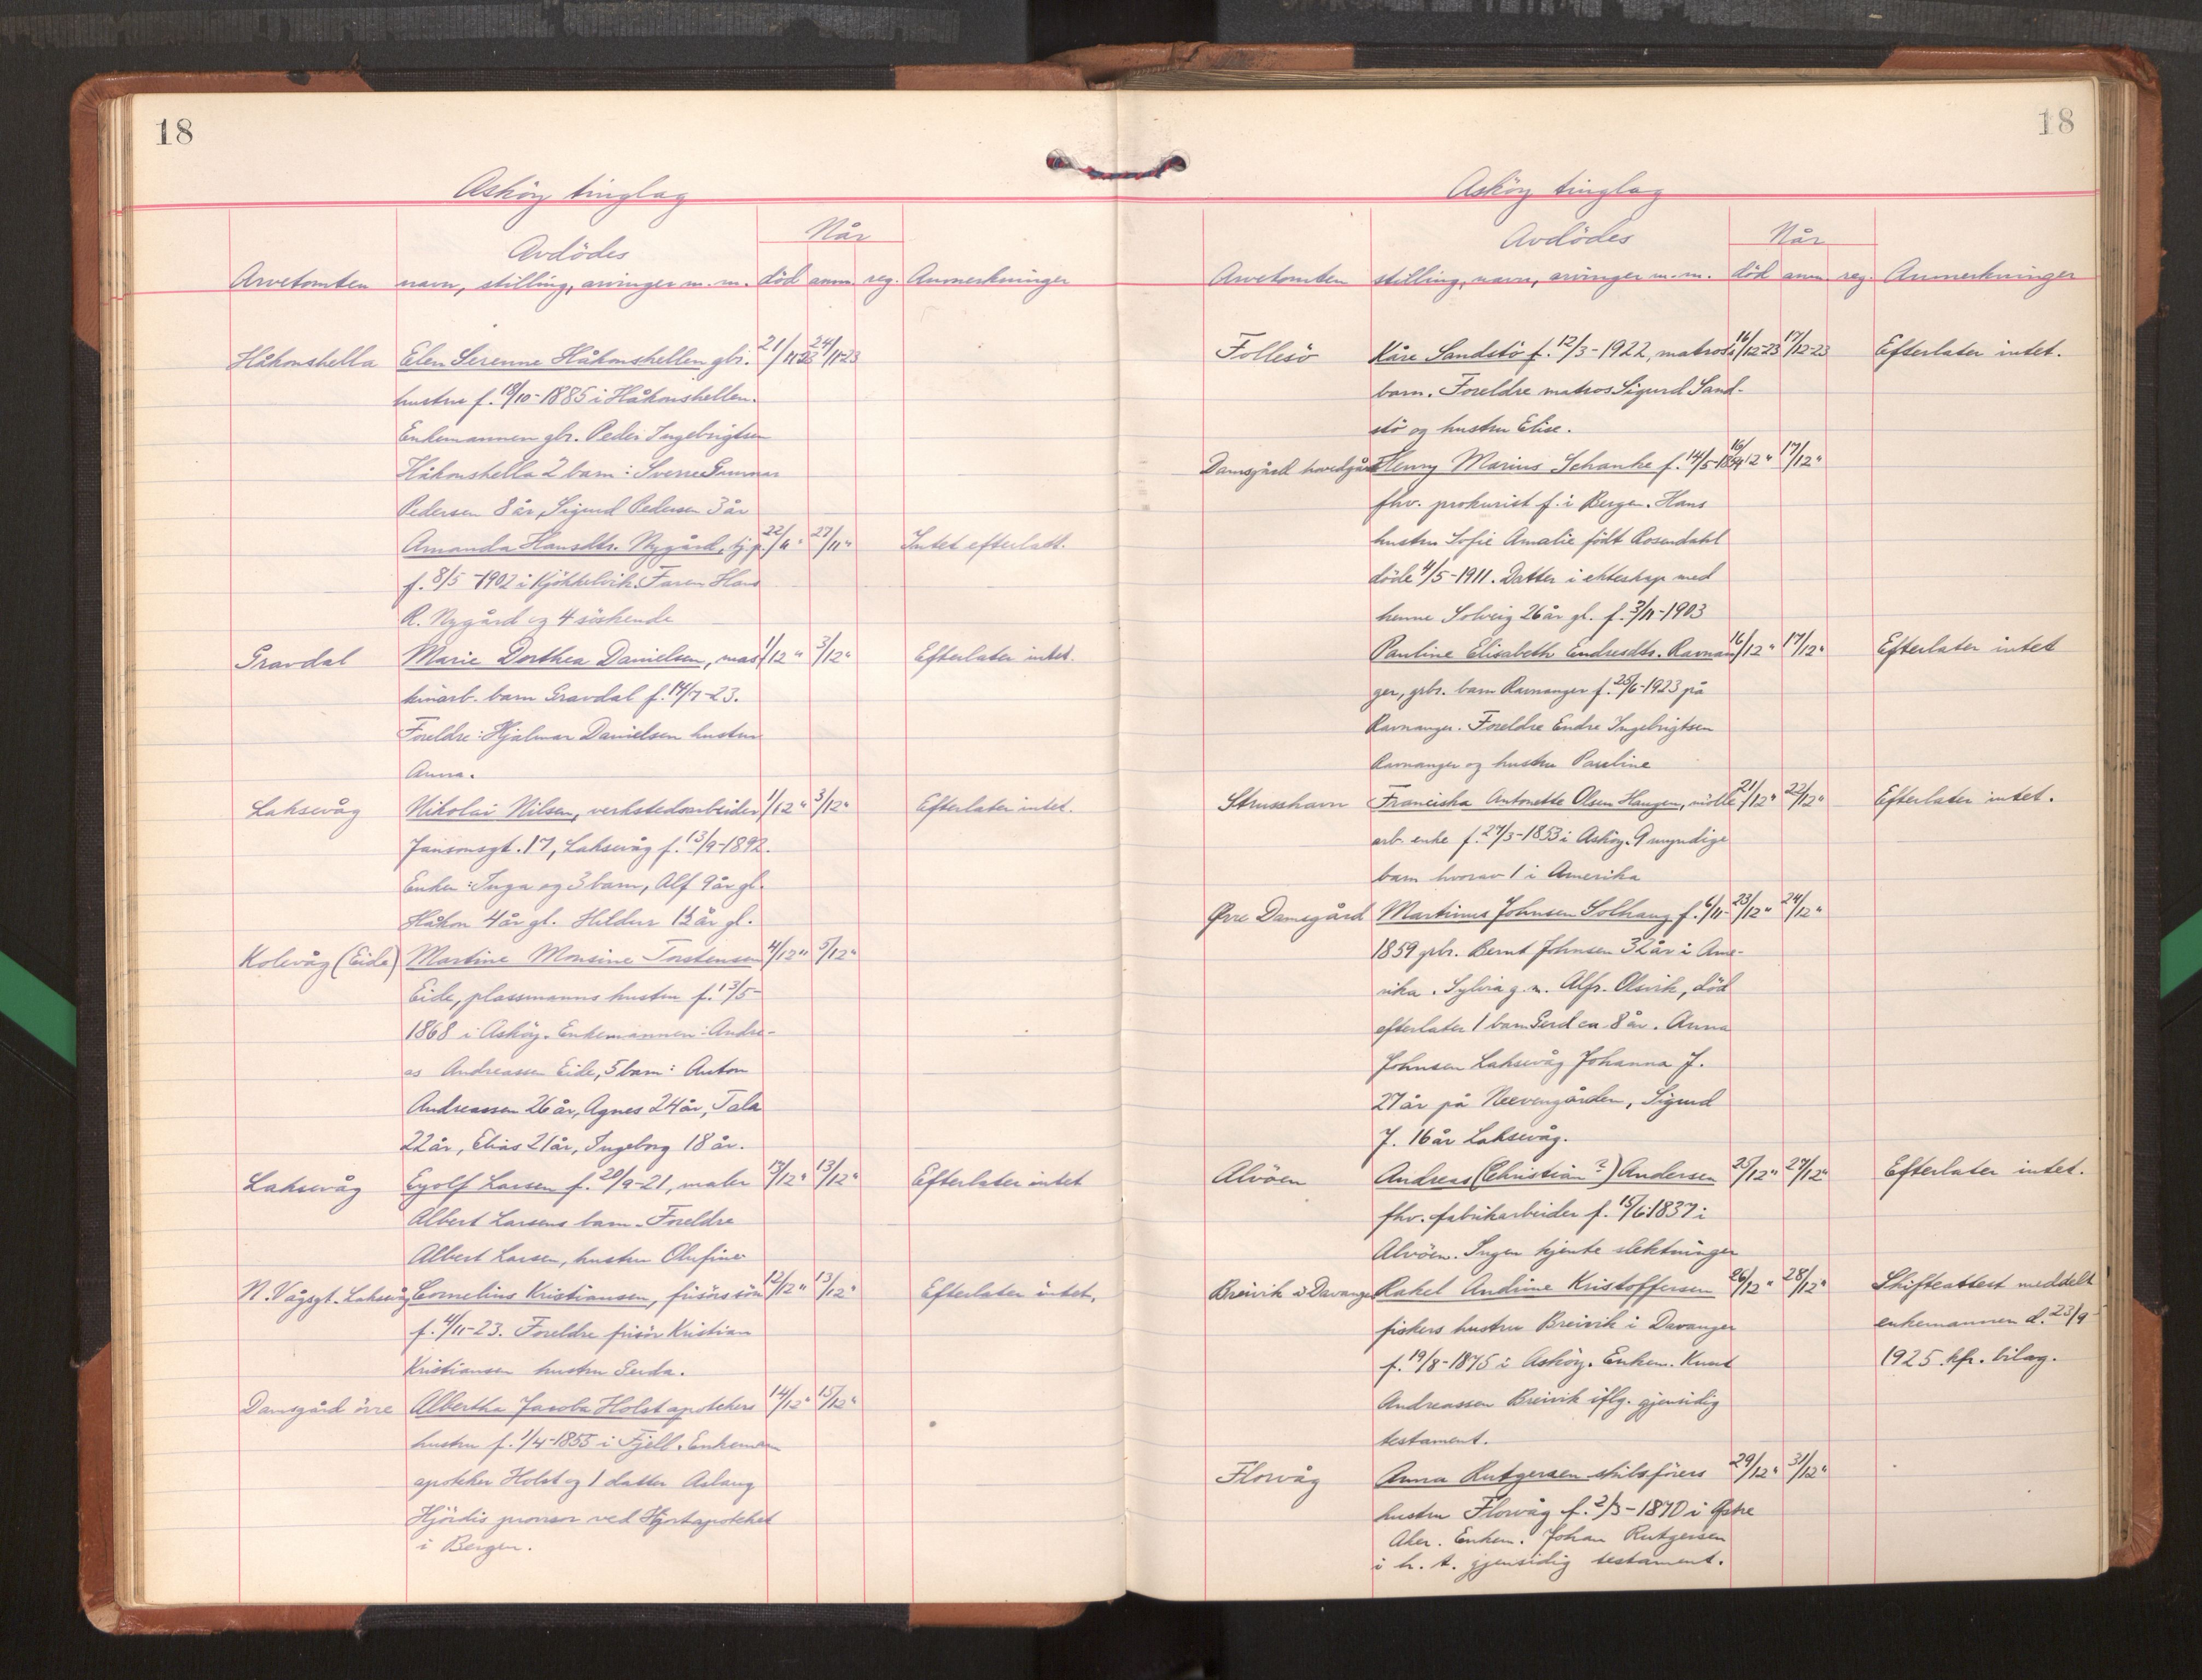 18
Asköy tinglag
Når
Avdödes
Arvetomten navn, stilling, arvinger m. m. död anm. reg. Anmerkninger
Håkonshella Elen Serenne Håkonshellen gbr. 21/11-23 24/11-23
hustru f. 18/10-1885 i Håkonshellen.
Enkemannen gbr. Peder Ingebrigtsen
Håkonshella 2 barn: Sverre Gunnar
Pedersen 8 år, Sigurd Pedersen 3 år
Amanda Hansdtr. Nygård, tj. p. 22/11" 27/11" Intet efterlatt.
f. 8/5-1902 i Kjökkelvik. Faren Hans
R. Nygård og 4 söskende
Gravdal Marie Dorthea Danielsen, mas- 1/12" 3/12" Efterlater intet.
kinarb. barn Gravdal f. 14/7-23.
Foreldre: Hjalmar Danielsen hustru
Anna.
Laksevåg Nikolai Nilsen, verkstedsarbeider 1/12" 3/12" Efterlater intet.
Jansonsgt. 17, Laksevåg f. 13/9-1892.
Enken: Inga og 3 barn, Alf 9 år gl.
Håkon 4 år gl. Hildur 1½ år gl.
Kolevåg (Eide) Martine Monsine Torstensen 4/12" 5/12"
Eide, plassmanns hustru f. 13/5-
1868 i Asköy. Enkemannen: Andre-
as Andreassen Eide, 5 barn: Anton
Andreassen 26 år, Agnes 24 år, Tala
22 år, Elias 21 år, Ingeborg 18 år.
Laksevåg Eyolf Larsen f. 20/9-21, maler 13/12" 13/12" Efterlater intet
Albert Larsens barn. Foreldre
Albert Larsen, hustru Olufine
N. Vågsgt. Laksevåg Cornelius Kristiansen, frisörs sön 12/12" 13/12" Efterlater intet.
f. 4/11-23. Foreldre frisör Kristian
Kristiansen hustru Gerda.
Damsgård övre Albertha Jacoba Holst apotekers 14/12" 15/12"
hustru f. 1/4-1855 i Fjell. Enkeman
apoteker Holst og 1 datter Aslaug
Hjördis provisor ved Hjortapoteket
i Bergen.
18
Asköy tinglag
Når
Avdödes
Arvetomten stilling, navn, arvinger m. m. död anm. reg. Anmerkninger
Follesö Kåre Sandstö f. 12/3-1922, matros's 16/12-23 17/12-23 Efterlater intet.
barn. Foreldre matros Sigurd Sand-
stö og hustru Elise.
Damsgård hovedgård Henry Marius Schanke f. 14/5-1854 16/12" 17/12"
fhv. prokurist f. i Bergen. Hans
hustru Sofie Amalie födt Rosendahl
döde 4/5-1911. Datter i ekteskap med
henne Solveig 26 år gl. f. 3/11-1903
Pauline Elisabeth Endresdtr. Ravnan- 16/12" 17/12" Efterlater intet
ger, gbr. barn Ravnanger f. 25/6-1923 på
Ravnanger. Foreldre Endre Ingebrigtsen
Ravnanger og hustru Pauline
Strusshavn Franciska Antonette Olsen Haugen, mölle- 21/12" 22/12" Efterlater intet.
arb. enke f. 27/3-1853 i Asköy. 9 myndige
barn hvorav 1 i Amerika
Øvre Damsgård Martinus Johnsen Solhaug f. 6/11- 23/12" 24/12"
1859 gbr. Bernt Johnsen 32 år i Ame-
rika. Sylvia g. m. Alfr. Olsvik, död
efterlater 1 barn Gerd ca. 8 år. Anna
Johnsen Laksevåg Johanna J.
27 år på Neevengården, Sigurd
J. 16 år Laksevåg.
Alvöen Andreas (Christian?) Andersen 25/12" 27/12" Efterlater intet.
fhv. fabrikarbeider f. 15/6 1837 i
Alvöen. Ingen kjente slektninger
Breivik i Davanger Rakel Andrine Kristoffersen 26/12" 28/12" Skifteattest meddelt
fiskers hustru Breivik i Davanger enkemannen d. 23/9-
f. 19/8-1875 i Asköy. Enkem. Knut 1925. kfr. bilag.
Andreassen Breivik iflg. gjensidig
testament.
Florvåg Anna Rutgersen skibsförers 29/12" 31/12"
hustru Florvåg f. 2/3-1870 i
Enkem. Johan Rutgersen
i h. t. gjensidig testament.